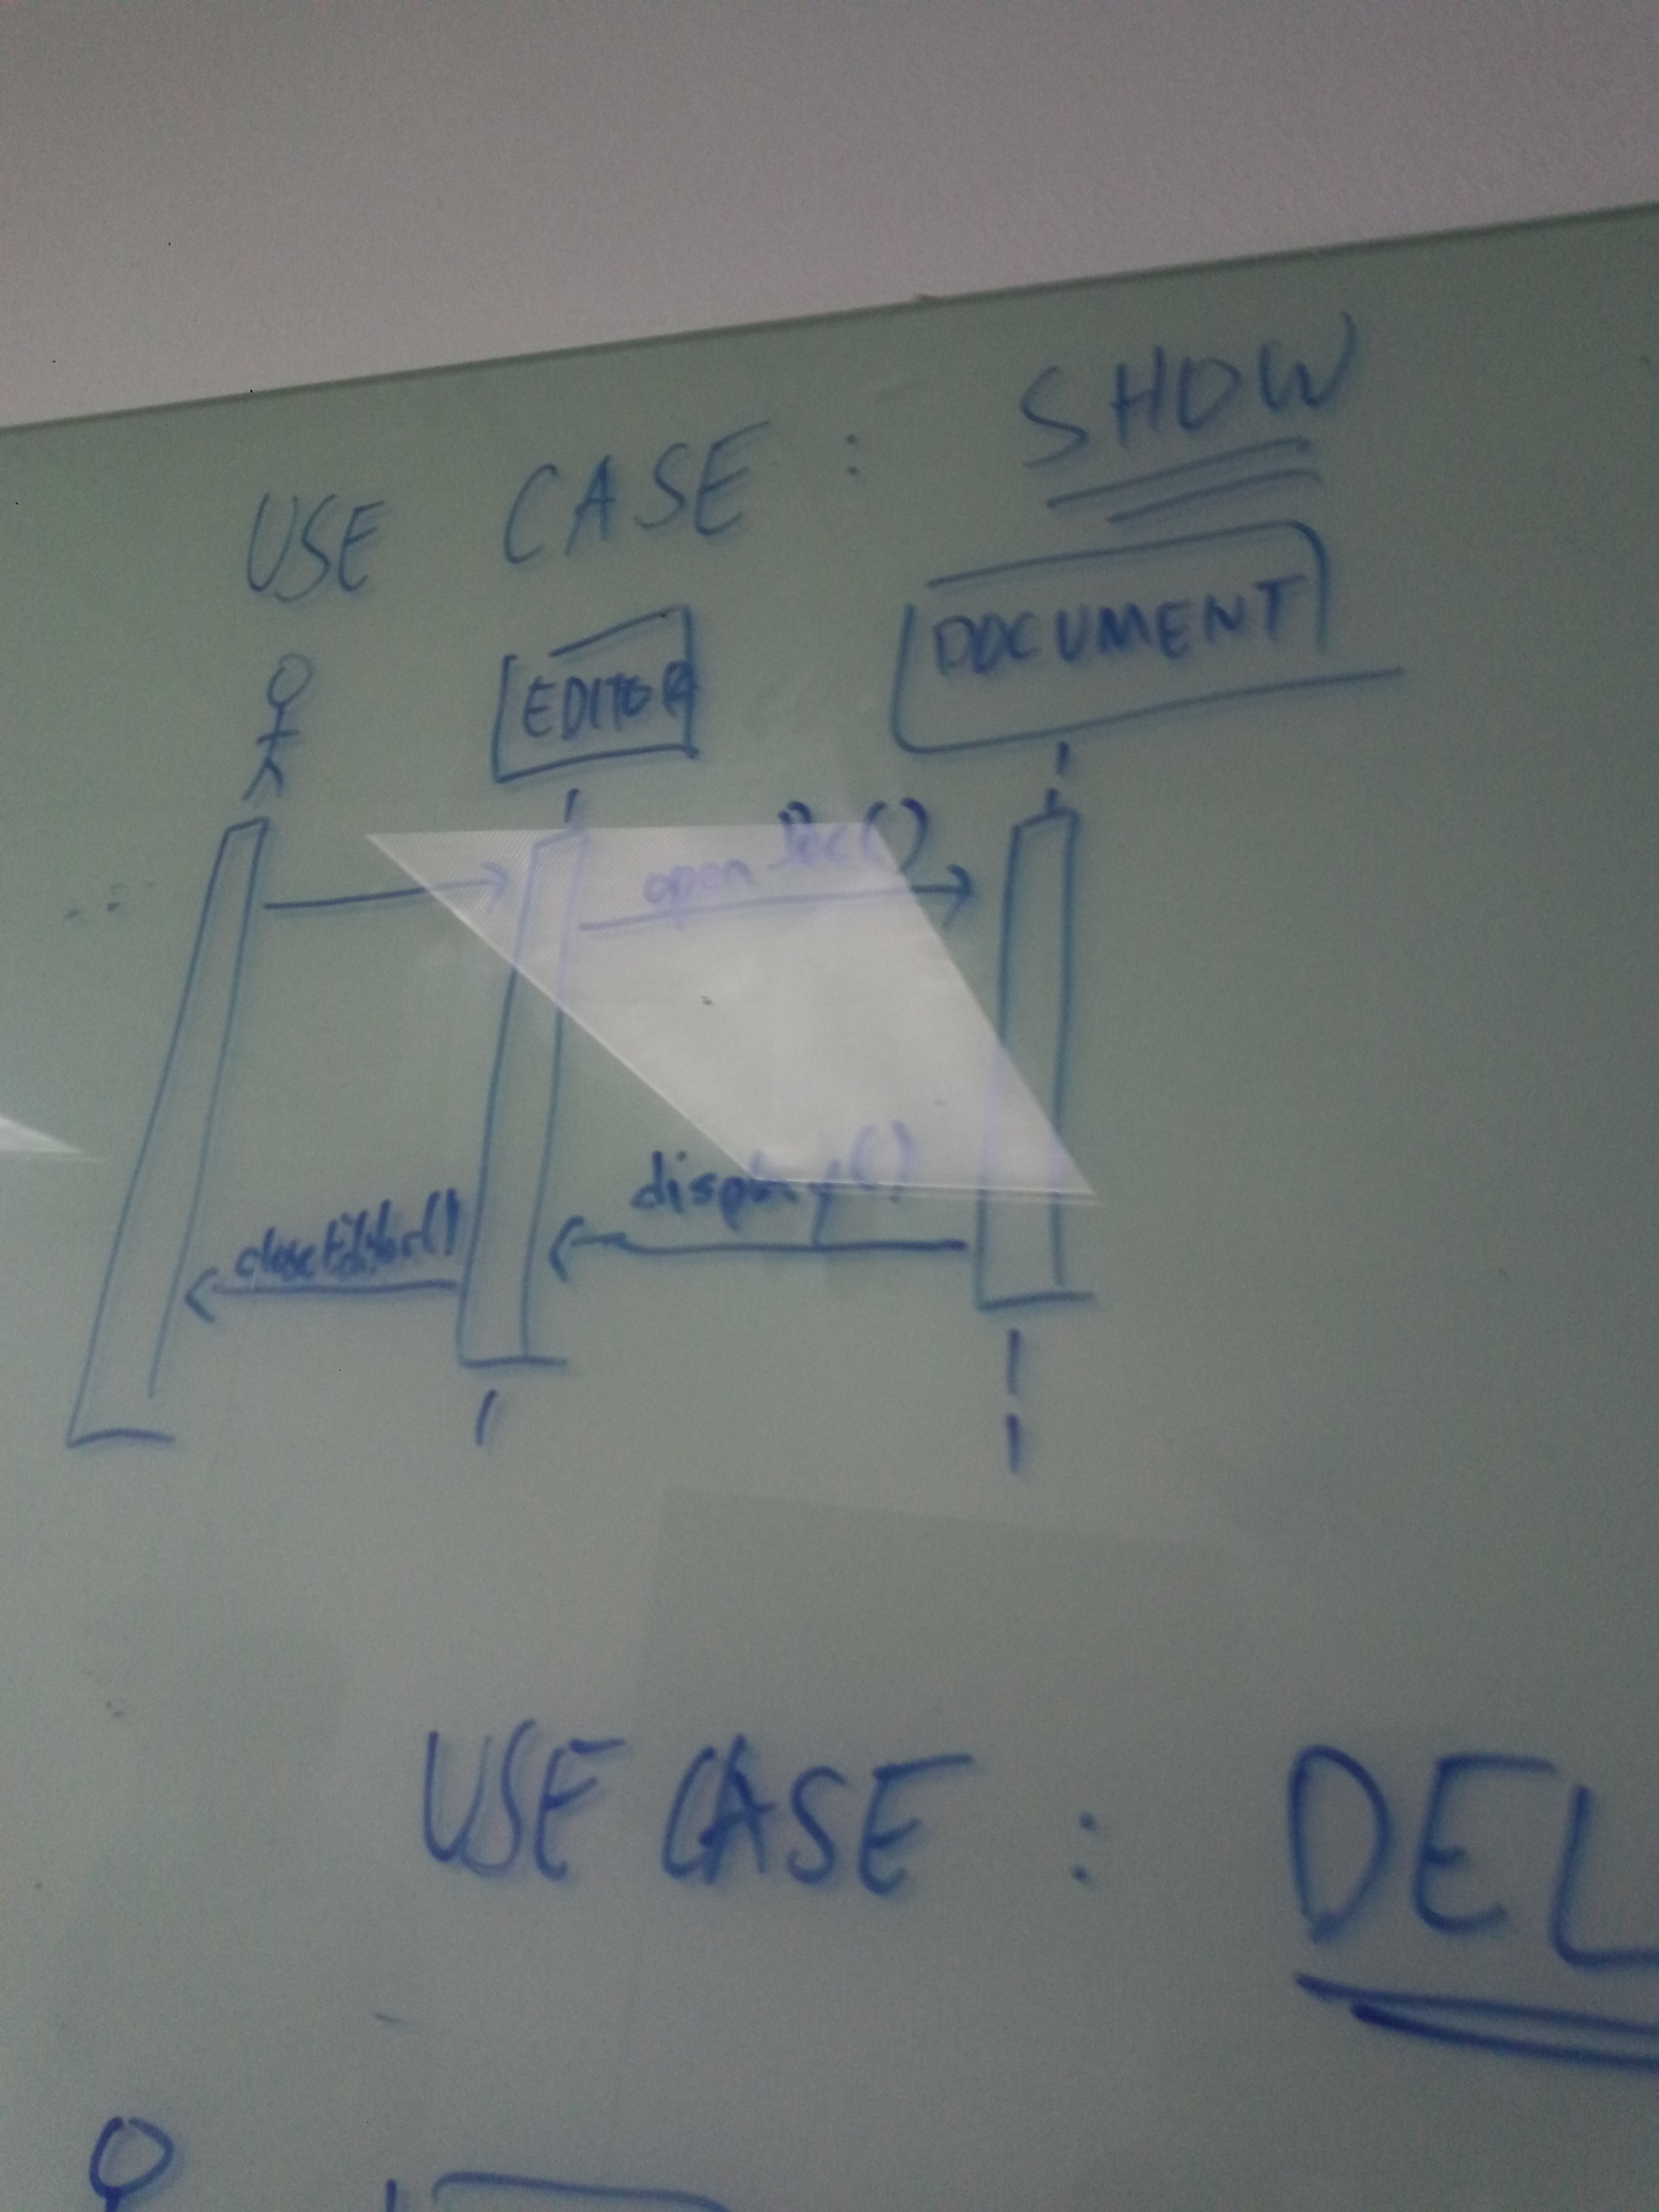 USE CASE : SHOW
EDITOR
DOCUMENT
open Doc()
display()
closeEditor()
USE CASE : DEL